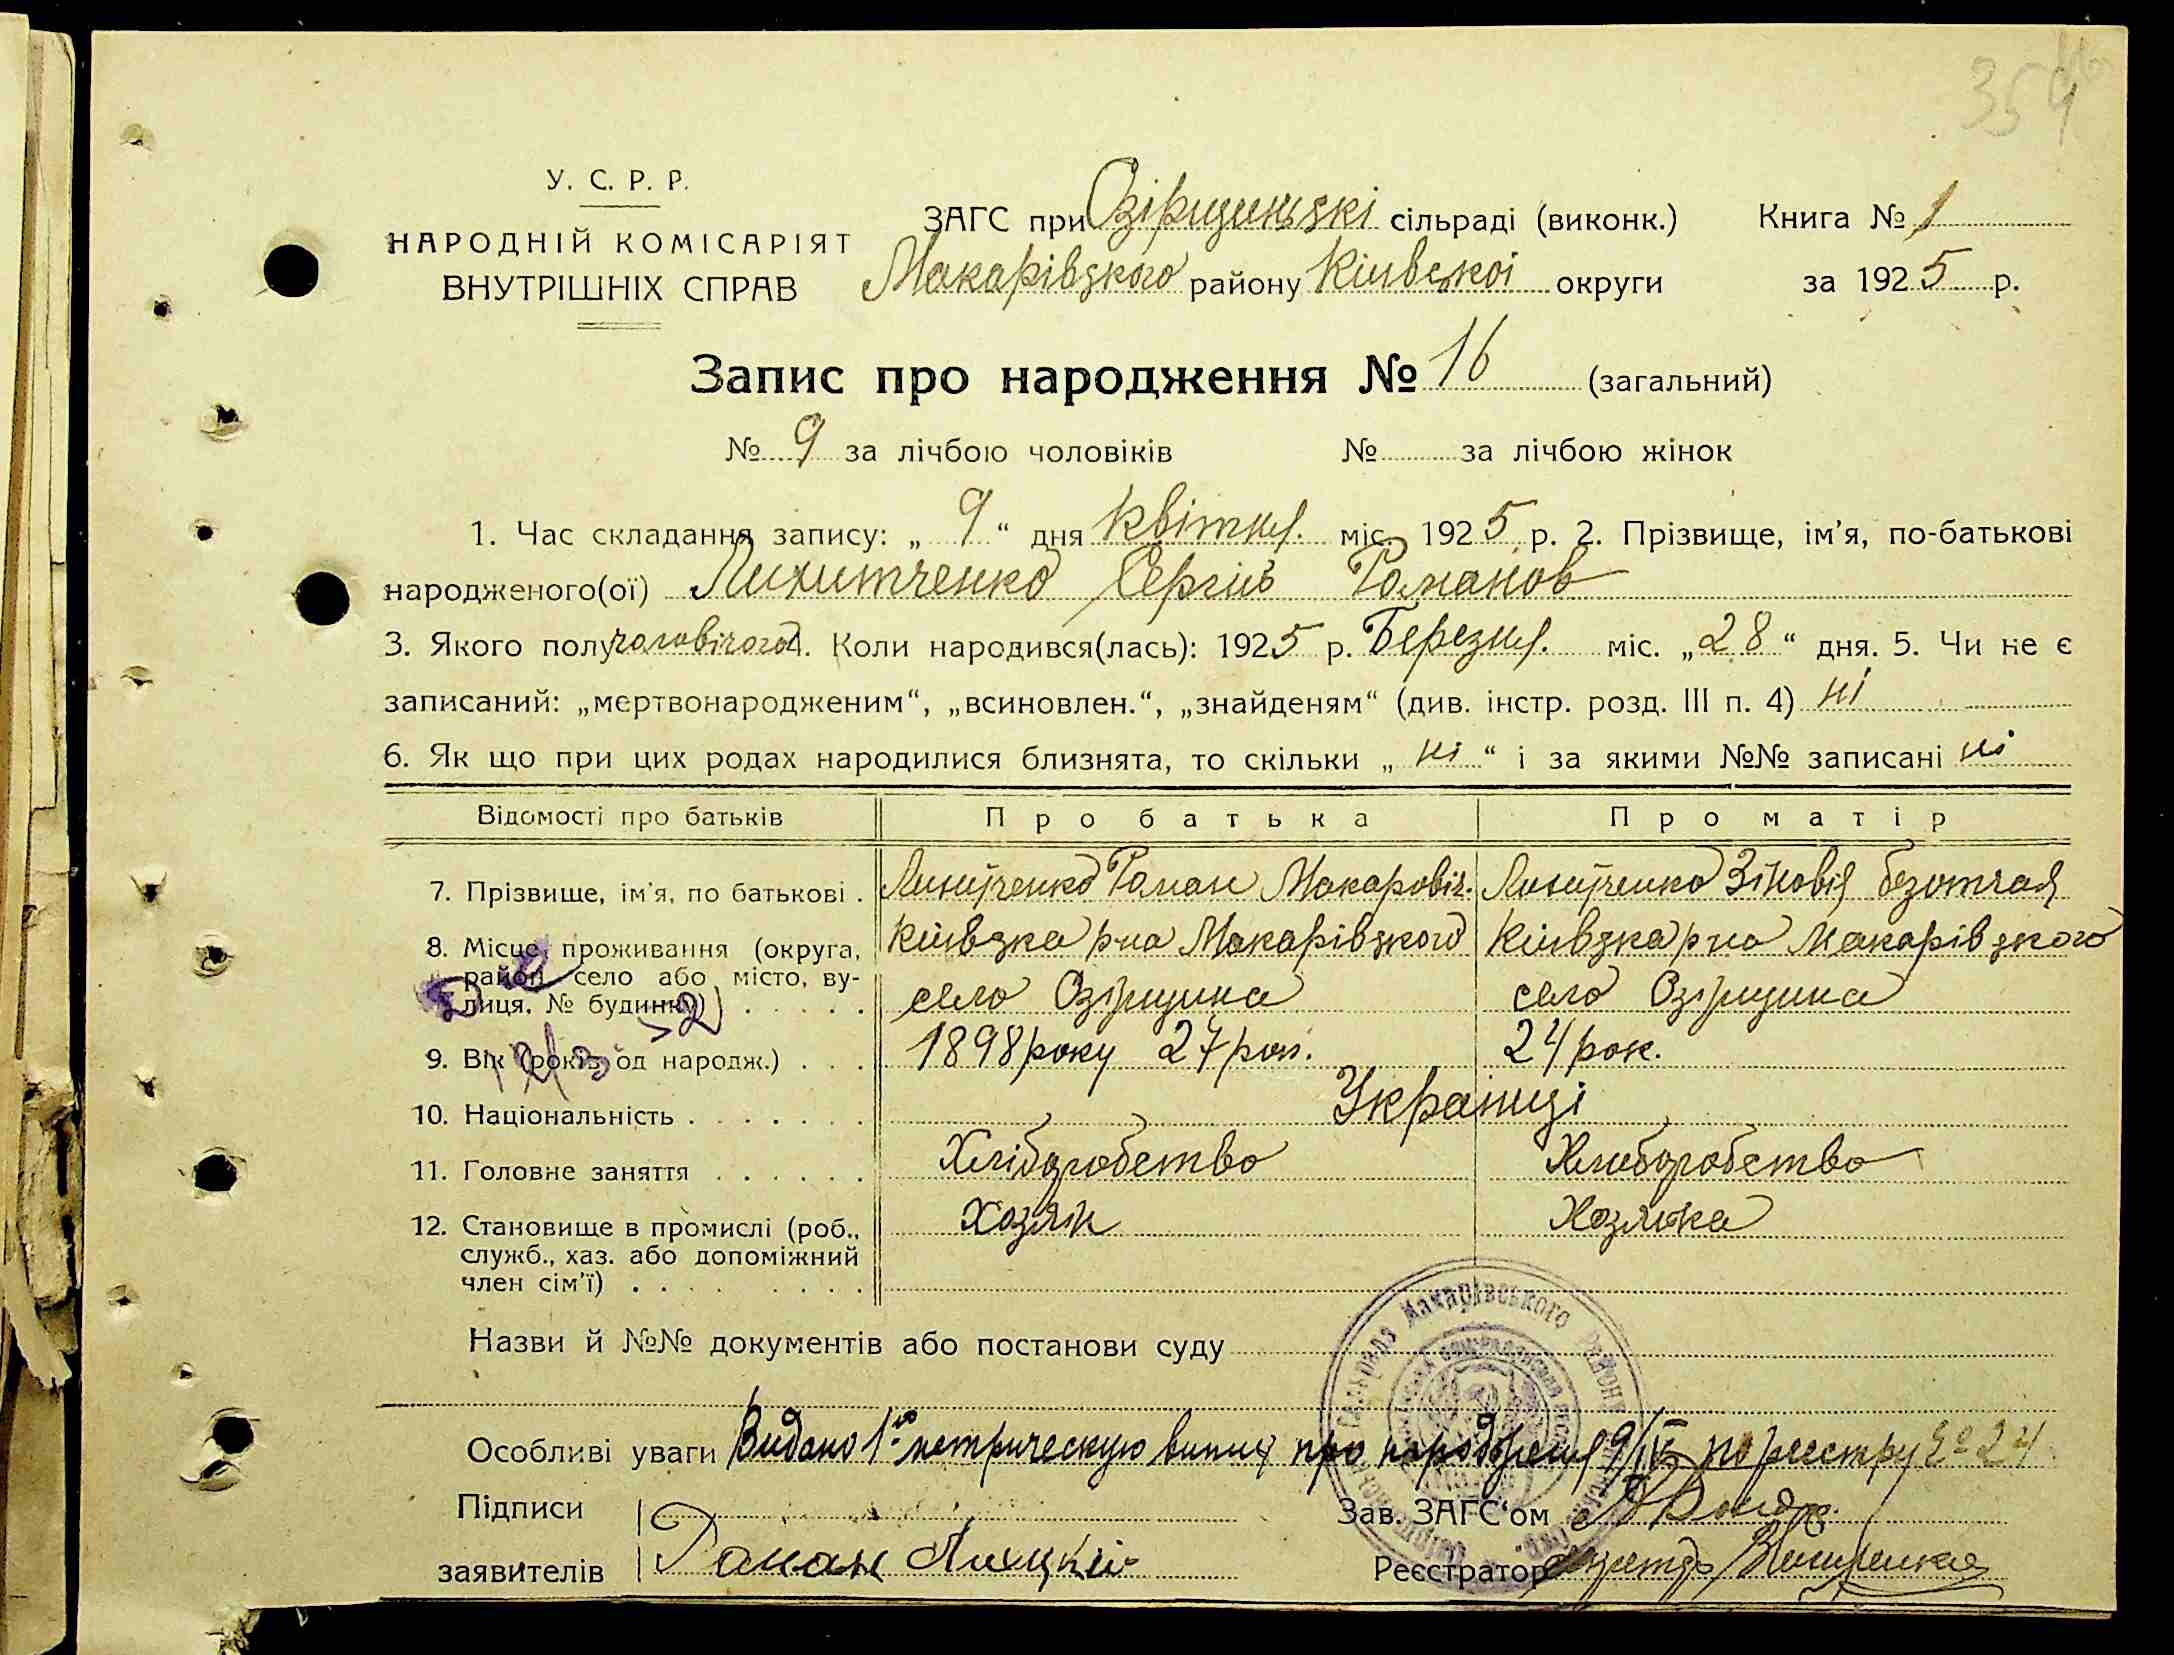 359
У. С. Р. Р.
НАРОДНІЙ КОМІСАРІЯТ
ВНУТРІШНІХ СПРАВ
ЗАГС при Озірщинські сільраді (виконк.) Книга № 1
Макарівського району Київської округи за 1925 р.
Запис про народження № 16 (загальний)
№ 9 за лічбою чоловіків № за лічбою жінок
1. Час складання запису: „ 9 “ дня Квітня. міс. 1925 р. 2. Прізвище, ім'я, по-батькові
народженого(ої) Сергій Романов
3. Якого полу чоловічого 4. Коли народився(лась): 1925 р. Березня. міс. „28“ дня. 5. Чи не є
записаний: „мертвонародженим“, „всиновлен.“, „знайденям“ (див. інстр. розд. III п. 4) ні
6. Як що при цих родах народилися близнята, то скільки „ ні “ і за якими №№ записані ні
Відомості про батьків Про батька Про матір
7. Прізвище, ім'я, по батькові . Роман Макарович. Зіновія
8. Місце проживання (округа, район, село або місто, вулиця, № будинку) . . . . .
Київзка р-на Макарівзкого Київзка р-на Макарівзкого
село Озірщина село Озірщина
9. Вік (років од народж.) . . . 1898 року 27 рок. 24 рок.
10. Національність . . . . . . . Українці
11. Головне заняття . . . . . . Хліборобство Хлиборобство
12. Становище в промислі (роб., служб., хаз. або допоміжний член сім'ї) . . . . . . . . . Хозяін Хозяйка
Назви й №№ документів або постанови суду
Особливі уваги Видано 1у метрическую випис про народженя 9/IV по реестру № 24
Підписи Зав. ЗАГС'ом
заявителів Роман Реєстратор
Макарівського району